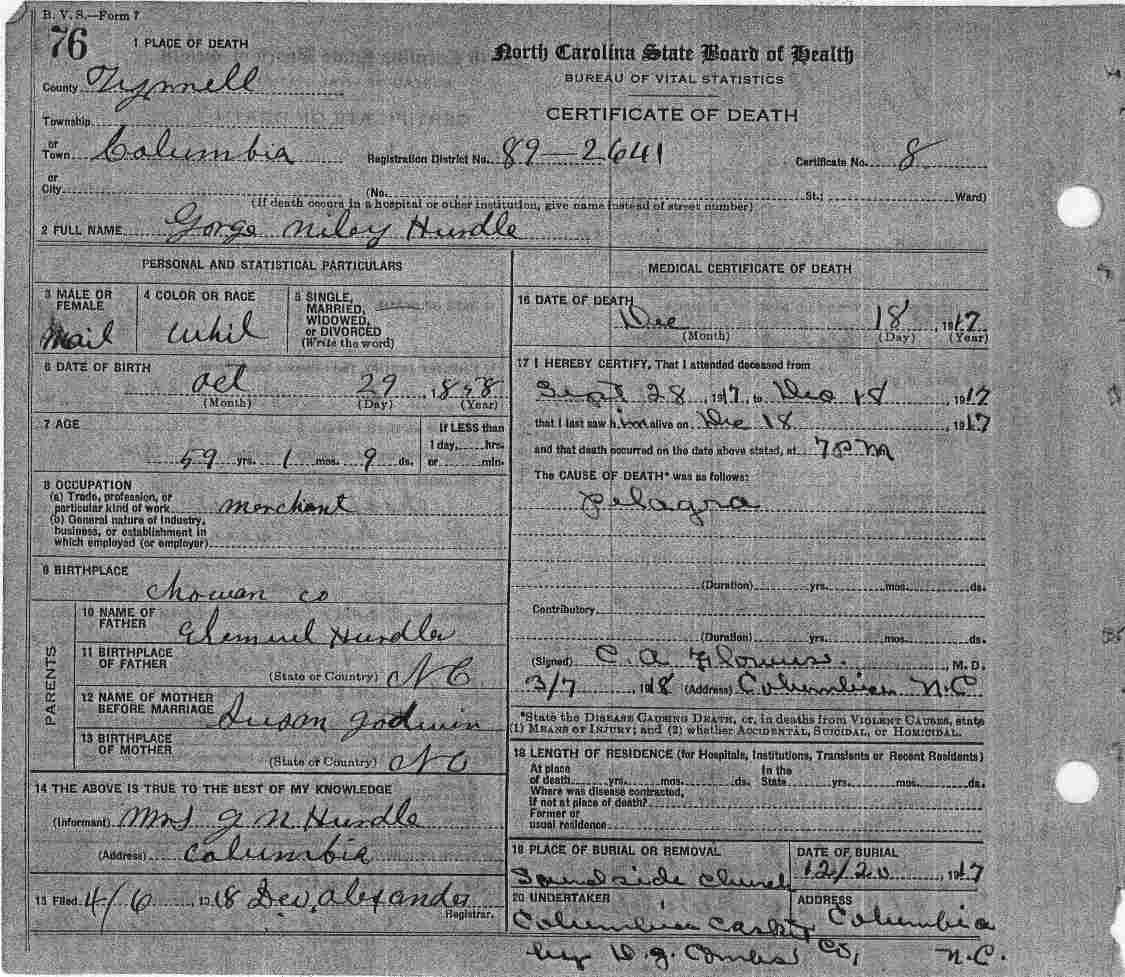 B. V. S.—Form 7
76
1 PLACE OF DEATH
North Carolina State Board of Health
BUREAU OF VITAL STATISTICS
CERTIFICATE OF DEATH
County Tyrrell
Township
or Town Columbia Registration District No. 89-2641 Certificate No. 8
or City (No. St.; Ward)
(If death occurs in a hospital or other institution, give name instead of street number)
2 FULL NAME Gorge Niley Hurdle
PERSONAL AND STATISTICAL PARTICULARS
3 MALE OR FEMALE
Mail
4 COLOR OR RACE
Whit
5 SINGLE, MARRIED, WIDOWED, or DIVORCED
(Write the word)
6 DATE OF BIRTH
Oct 29, 1858
(Month) (Day) (Year)
7 AGE
59 yrs. 1 mos. 9 ds.
If LESS than 1 day, hrs. or min.
8 OCCUPATION
(a) Trade, profession, or particular kind of work merchant
(b) General nature of industry, business, or establishment in which employed (or employer)
9 BIRTHPLACE
Chowan co
PARENTS
10 NAME OF FATHER
Hurdle
11 BIRTHPLACE OF FATHER
(State or Country) N C
12 NAME OF MOTHER BEFORE MARRIAGE Susan Godwin
13 BIRTHPLACE OF MOTHER
(State or Country) N C
14 THE ABOVE IS TRUE TO THE BEST OF MY KNOWLEDGE
(Informant) Mrs G N Hurdle
(Address) Columbia
15 Filed 4/6, 1918 Alexander
Registrar.
MEDICAL CERTIFICATE OF DEATH
16 DATE OF DEATH
Dec 18, 1917
(Month) (Day) (Year)
17 I HEREBY CERTIFY, That I attended deceased from
Sept 28, 1917, to Dec 18, 1917
that I last saw him alive on Dec 18, 1917
and that death occurred on the date above stated, at 7 P M
The CAUSE OF DEATH* was as follows:
Pelagra
(Duration) yrs. mos. ds.
Contributory
(Duration) yrs. mos. ds.
(Signed) C. A. Flowers, M. D.
3/7, 1918 (Address) Columbia N.C
*State the DISEASE CAUSING DEATH, or, in deaths from VIOLENT CAUSES, state
(1) MEANS OF INJURY; and (2) whether ACCIDENTAL, SUICIDAL, OR HOMICIDAL.
18 LENGTH OF RESIDENCE (for Hospitals, Institutions, Transients or Recent Residents)
At place of death yrs. mos. ds. In the State yrs. mos. ds.
Where was disease contracted,
If not at place of death?
Former or
usual residence
19 PLACE OF BURIAL OR REMOVAL
Sound side church
DATE OF BURIAL
12/20, 1917
20 UNDERTAKER
Columbia Casket Co,
by D. G. Combs
ADDRESS
Columbia
N.C.